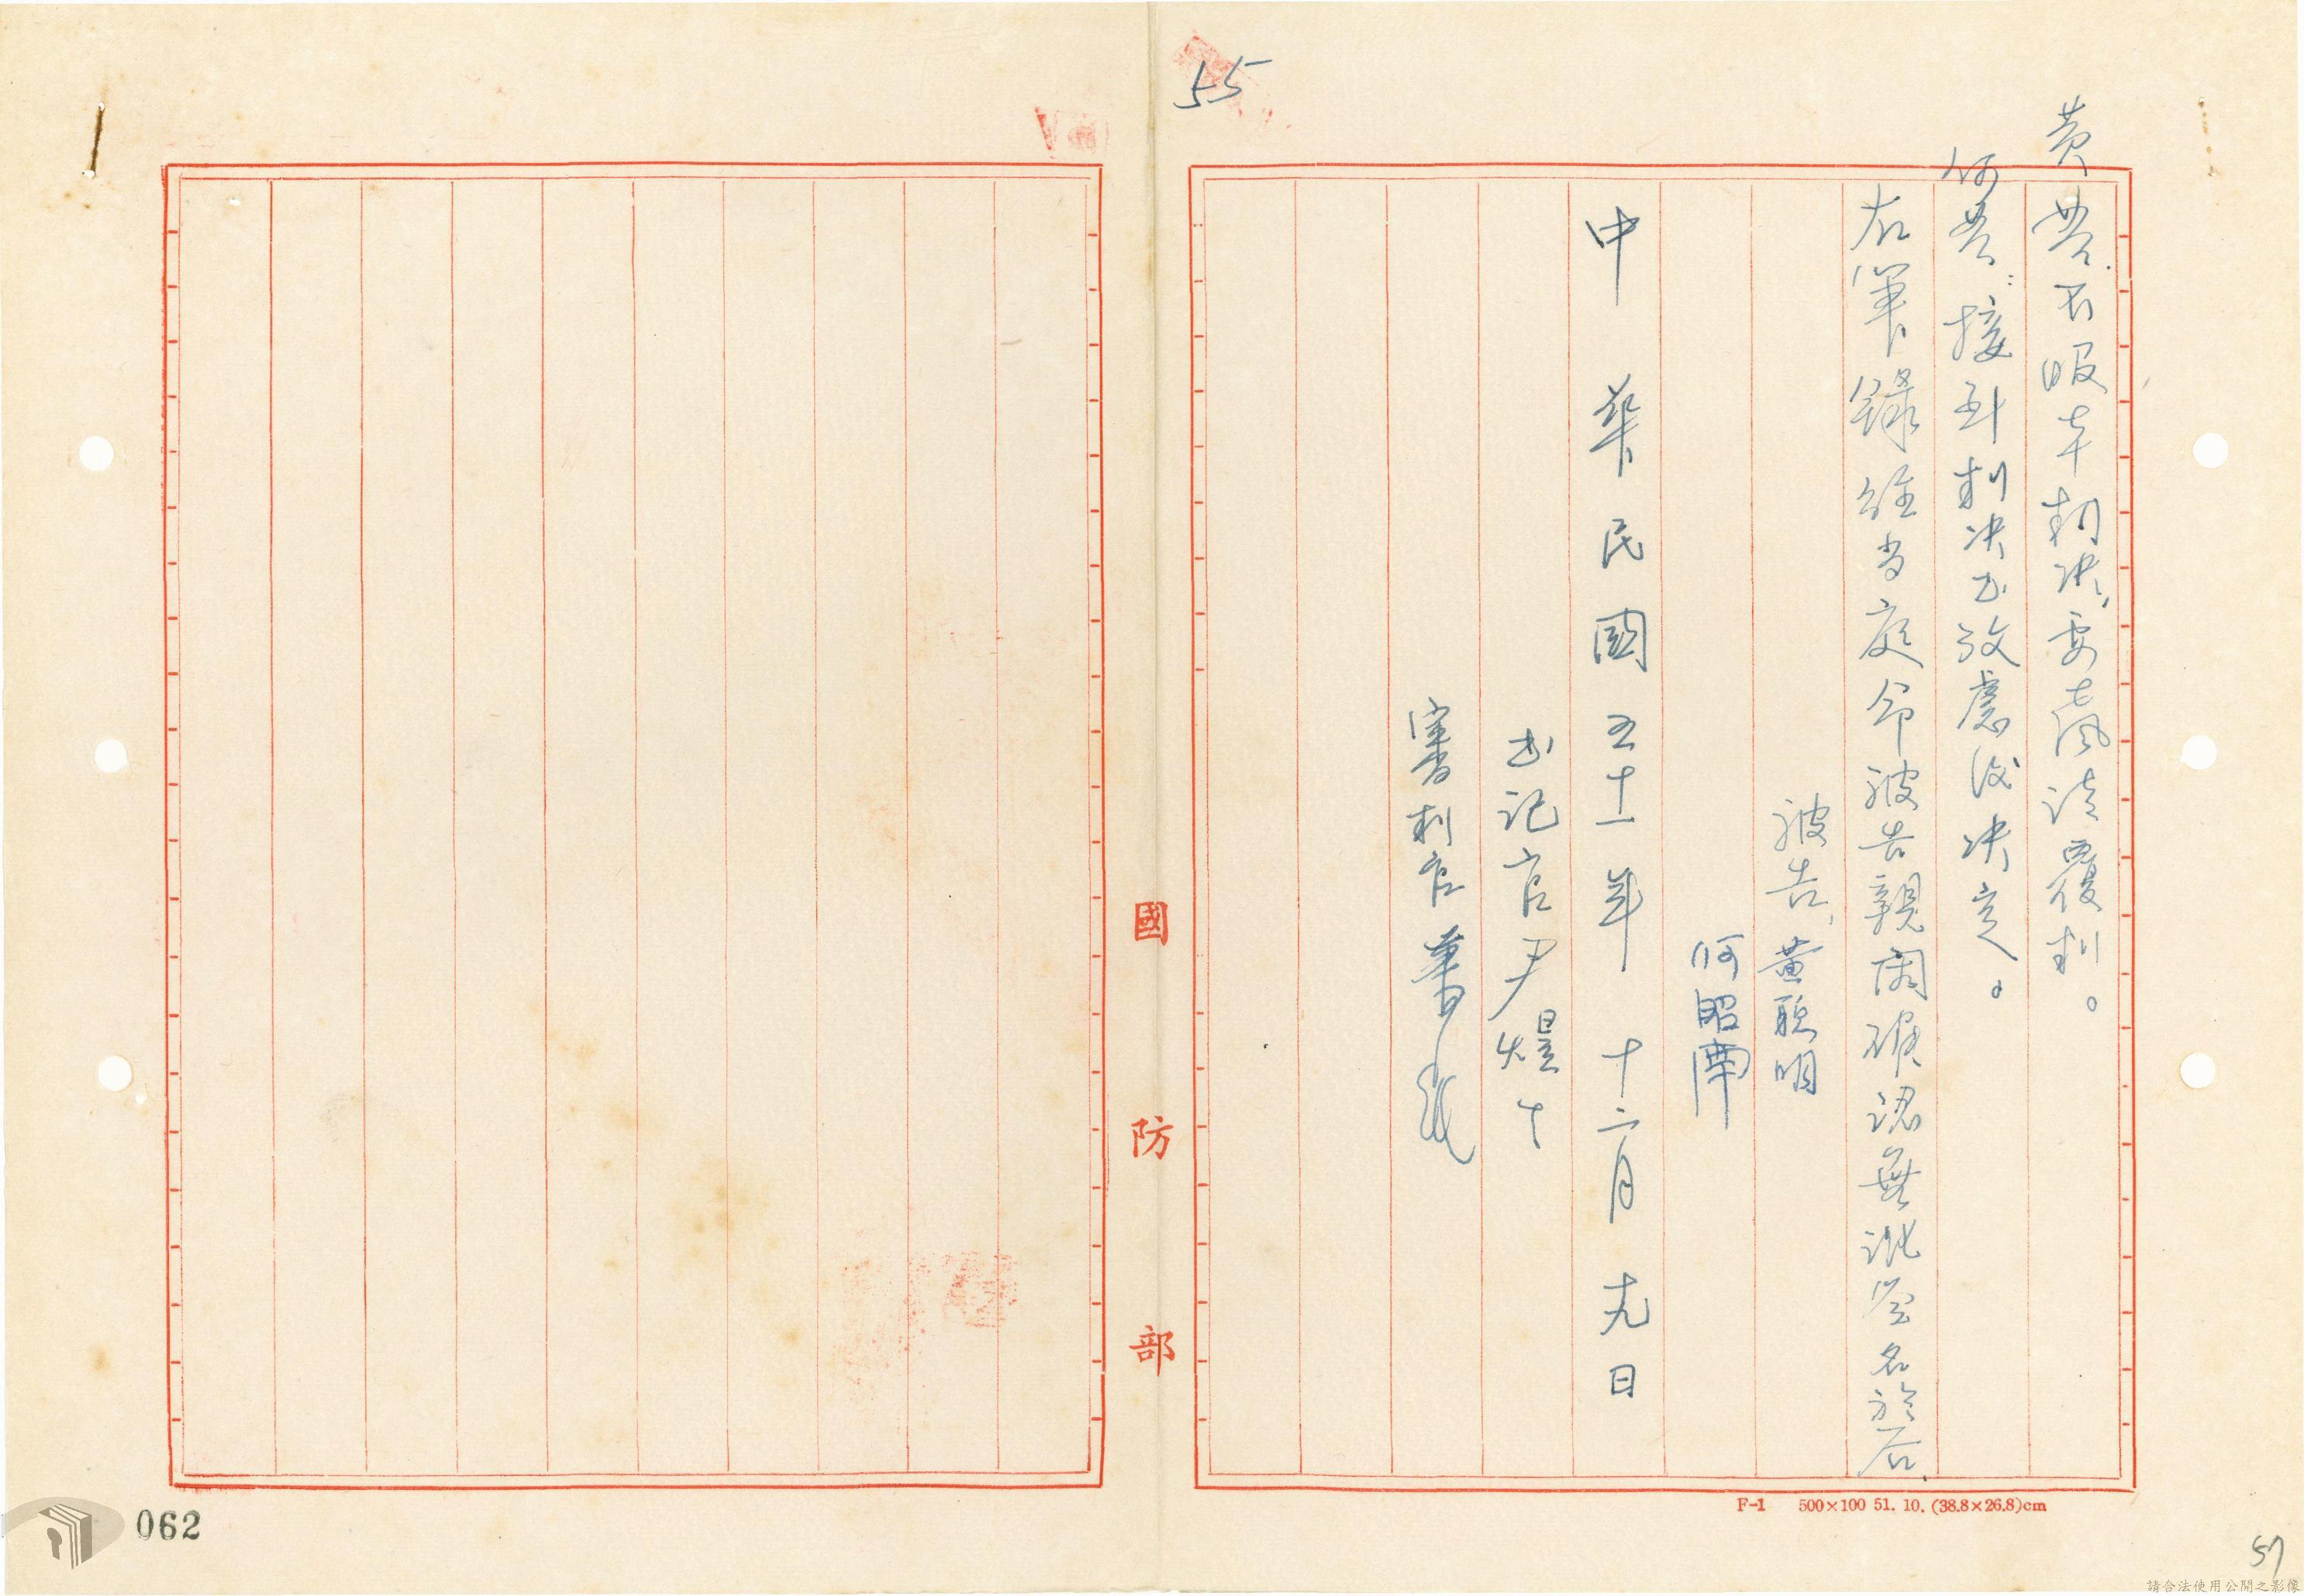 55
黃答：不服本判決，要聲請覆判。
何答：接到判決书攷慮後決定。
右筆錄經当庭命被告親閱確認無訛簽名於后
被告，黃聰明
何昭南
中華民國五十一年十二月十九日
书記官尹煜
審判官
國防部
F-1 500×100 51. 10. (38.8×26.8)cm
062
57
請合法使用公開之影像